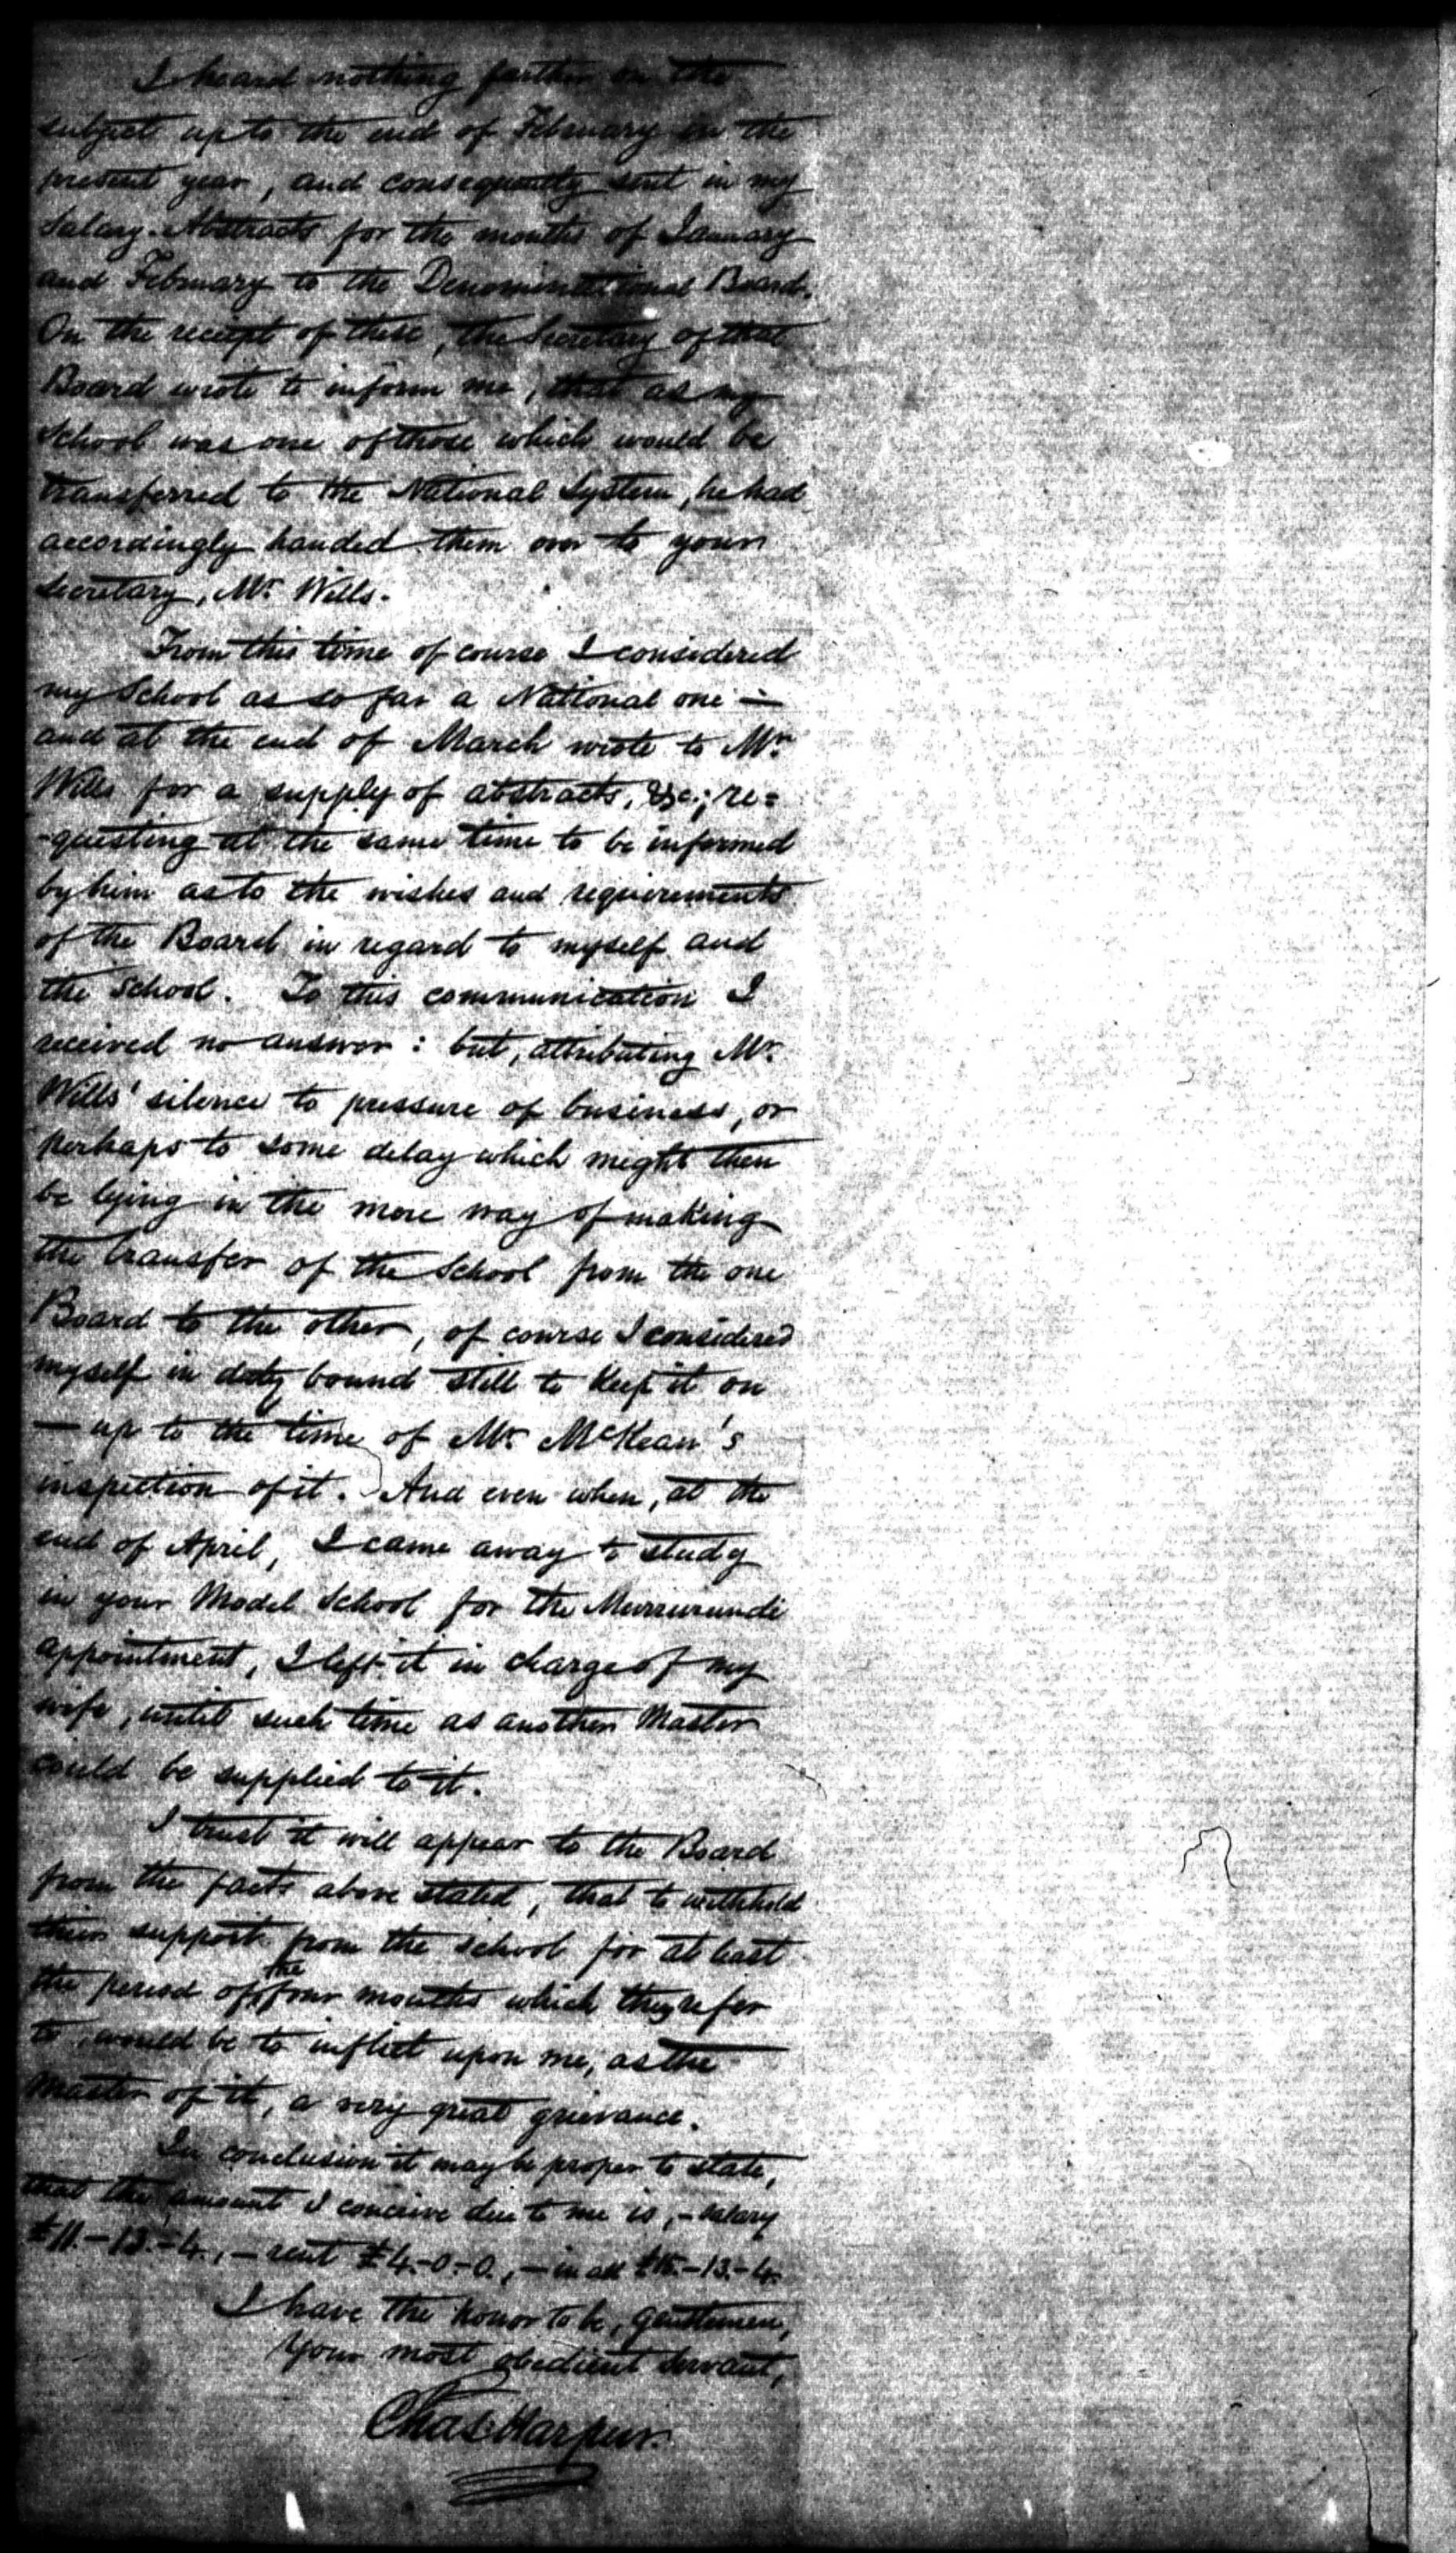 I heard nothing further on the
subject up to the end of February in the
present year, and consequently sent in my
Salary-Abstracts for the months of January
and February to the Denominational Board.
On the receipt of these, the Secretary of that
Board wrote to inform me, that as my
School was one of those which would be
transferred to the National System, he had
accordingly handed them over to your
Secretary, Mr. Wills.
From this time of course I considered
my School as so far a National one —
and at the end of March wrote to Mr.
Wills for a supply of abstracts, &c.; re=
-questing at the same time to be informed
by him as to the wishes and requirements
of the Board in regard to myself and
the School. To this communication I
received no answer: but, attributing Mr.
Wills' silence to pressure of business, or
perhaps to some delay which might then
be lying in the mere way of making
the transfer of the School from the one
Board to the other, of course I considered
myself in duty bound still to keep it on
— up to the time of Mr. McKean's
inspection of it. And even when, at the
end of April, I came away to study
in your Model School for the Murrurundi
appointment, I left it in charge of my
wife, until such time as another Master
could be supplied to it.
I trust it will appear to the Board
from the facts above stated, that to withhold
their support from the school for at least
the period of the four months which they refer
to, would be to inflict upon me, as the
Master of it, a very great grievance.
In conclusion it may be proper to state,
that the amount I conceive due to me is, – salary
£11.–13.–4., – rent £4.–0.–0., – in all £15.–13.–4.
I have the honor to be, Gentlemen,
Your most obedient Servant,
Chas. Harpur.